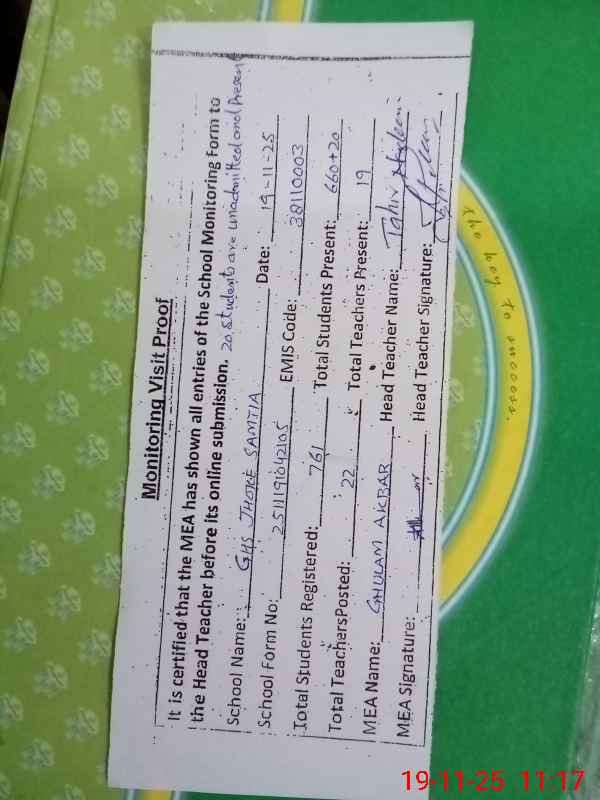 Monitoring Visit Proof
It is certified that the MEA has shown all entries of the School Monitoring Form to
the Head Teacher before its online submission. 20 students are unadmitted and Present
School Name: GHS JHOKE SAMTIA Date: 19-11-25
School Form No: 2511191042105 EMIS Code: 38110003
Total Students Registered: 761 Total Students Present: 660+20
Total TeachersPosted: 22 Total Teachers Present: 19
MEA Name: GHULAM AKBAR Head Teacher Name: Tahir
MEA Signature: Head Teacher Signature:
success.
19-11-25 11:17